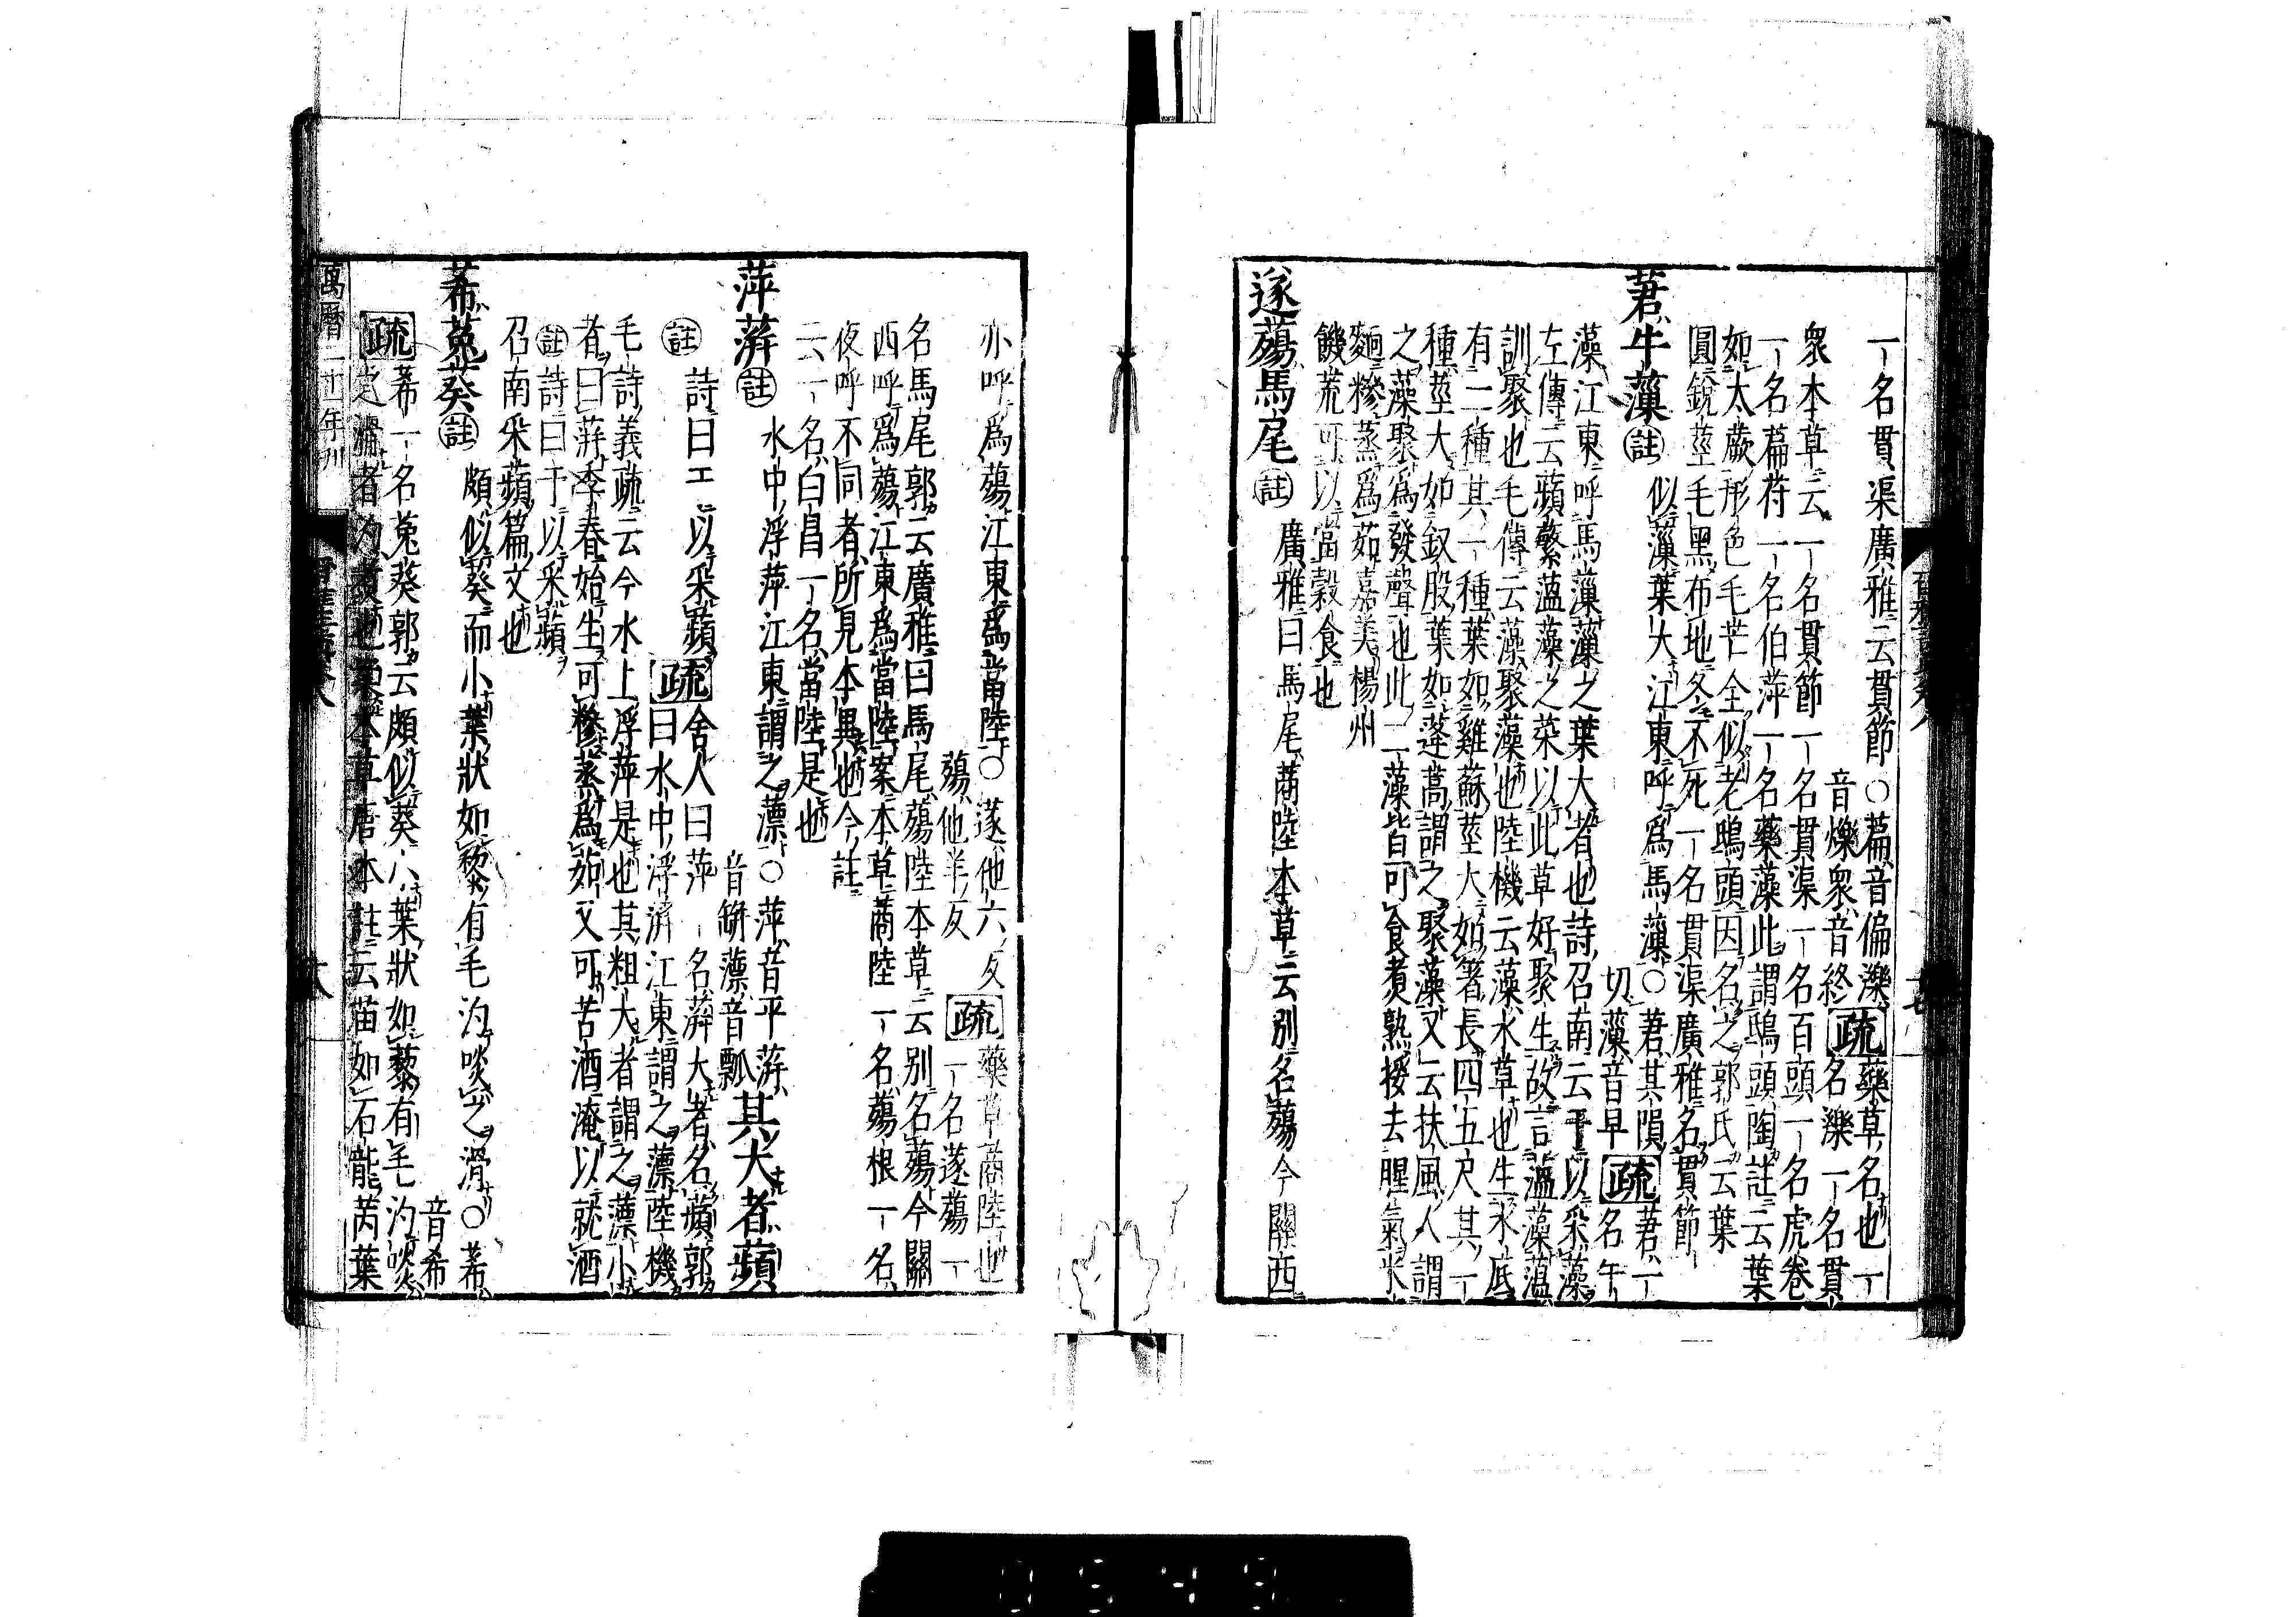 一名貫渠廣雅云貫節○萹音偏濼
音爍衆音終疏藥草名也一
名濼一名貫
衆本草云一名貫節一名貫渠一名百頭一名虎卷
一名萹苻一名伯萍一名藥藻此謂鴟頭陶註云葉
如大蕨形色毛芒全似老鴟頭因名之郭氏云葉
圓銳莖毛黑布地冬不死一名貫渠廣雅名貫節
莙牛薻註似薻葉大江東呼爲馬薻○莙其隕
切薻音早疏莙一名牛
藻江東呼馬薻薻之葉大者也詩召南云于以采藻
左傳云蘋蘩薀藻之菜以此草好聚生故言薀藻薀
訓聚也毛傳云藻聚藻也陸機云藻水草也生水底
有二種其一種葉如雞蘇莖大如箸長四五尺其一
種莖大如釵股葉如蓬蒿謂之聚藻又云扶風人謂
之藻聚爲發聲也此二藻皆可食煑熟挼去腥氣米
麵糝蒸爲茹嘉美楊州
饑荒可以當穀食也
蓫薚馬尾註廣雅曰馬尾蔏陸本草云別名薚今關西
亦呼爲薚江東爲當陸○蓫他六反
薚他半反疏藥草商陸也
一名蓫薚一
名馬尾郭云廣雅曰馬尾薚陸本草云別名薚今關
西呼爲薚江東爲當陸案本草蔏陸一名薚根一名
夜呼不同者所見本異也今註
云一名白昌一名當陸是也
萍蓱註水中浮萍江東謂之薸○萍音平蓱
音缾薸音瓢其大者蘋
註詩曰于以采蘋疏舍人曰萍一名蓱大者名蘋郭
曰水中浮蓱江東謂之薸陸機
毛詩義疏云今水上浮萍是也其粗大者謂之蘋小
者曰蓱季春始生可糝蒸爲茹又可苦酒淹以就酒
註詩曰于以采蘋
召南采蘋篇文也
莃菟葵註頗似葵而小葉狀如藜有毛汋啖之滑○莃
音希
疏莃一名菟葵郭云頗似葵小葉狀如藜有毛汋啖
之滑者汋煑也案本草唐本註云苗如石龍芮葉
萬曆二十一年刊